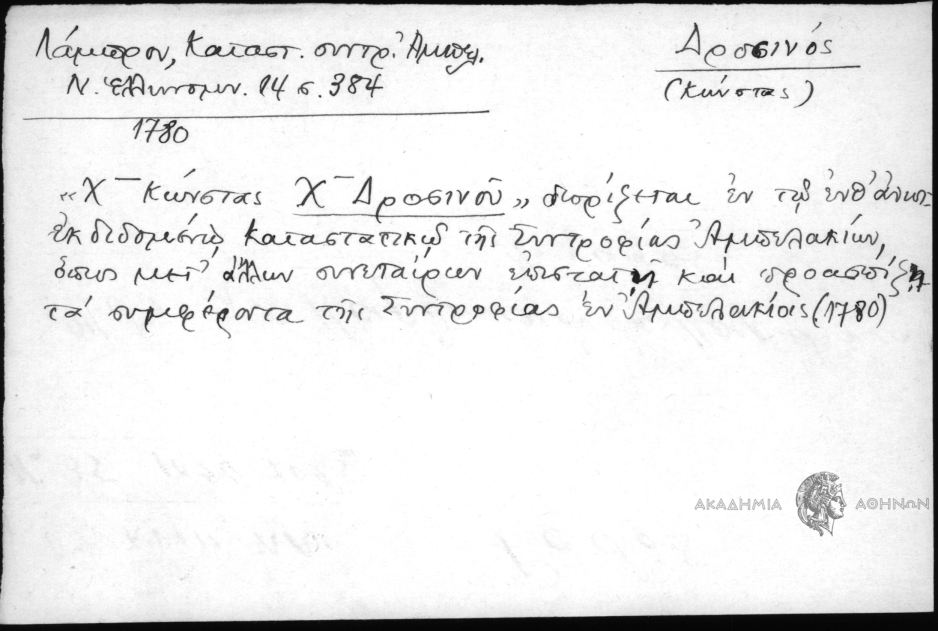 Λάμπρου, Καταστ. συντρ. Ἀμπελ.
Ν. Ἑλληνομν. 14 σ. 384
1780
Δροσινός
(Κώνστας)
"Χ– Κώνστας Χ– Δροσινοῦ" διορίζεται ἐν τῷ ἐνθ' ἀνωτ.
ἐκδιδομένῳ Καταστατικῷ τῆς Συντροφίας Ἀμπελακίων,
ὅπως μετ' ἄλλων συνεταίρων ἐπιστατῇ καὶ προασπίζῃ
τὰ συμφέροντα τῆς Συντροφίας ἐν Ἀμπελακίοις (1780)
ΑΚΑΔΗΜΙΑ ΑΘΗΝΩΝ